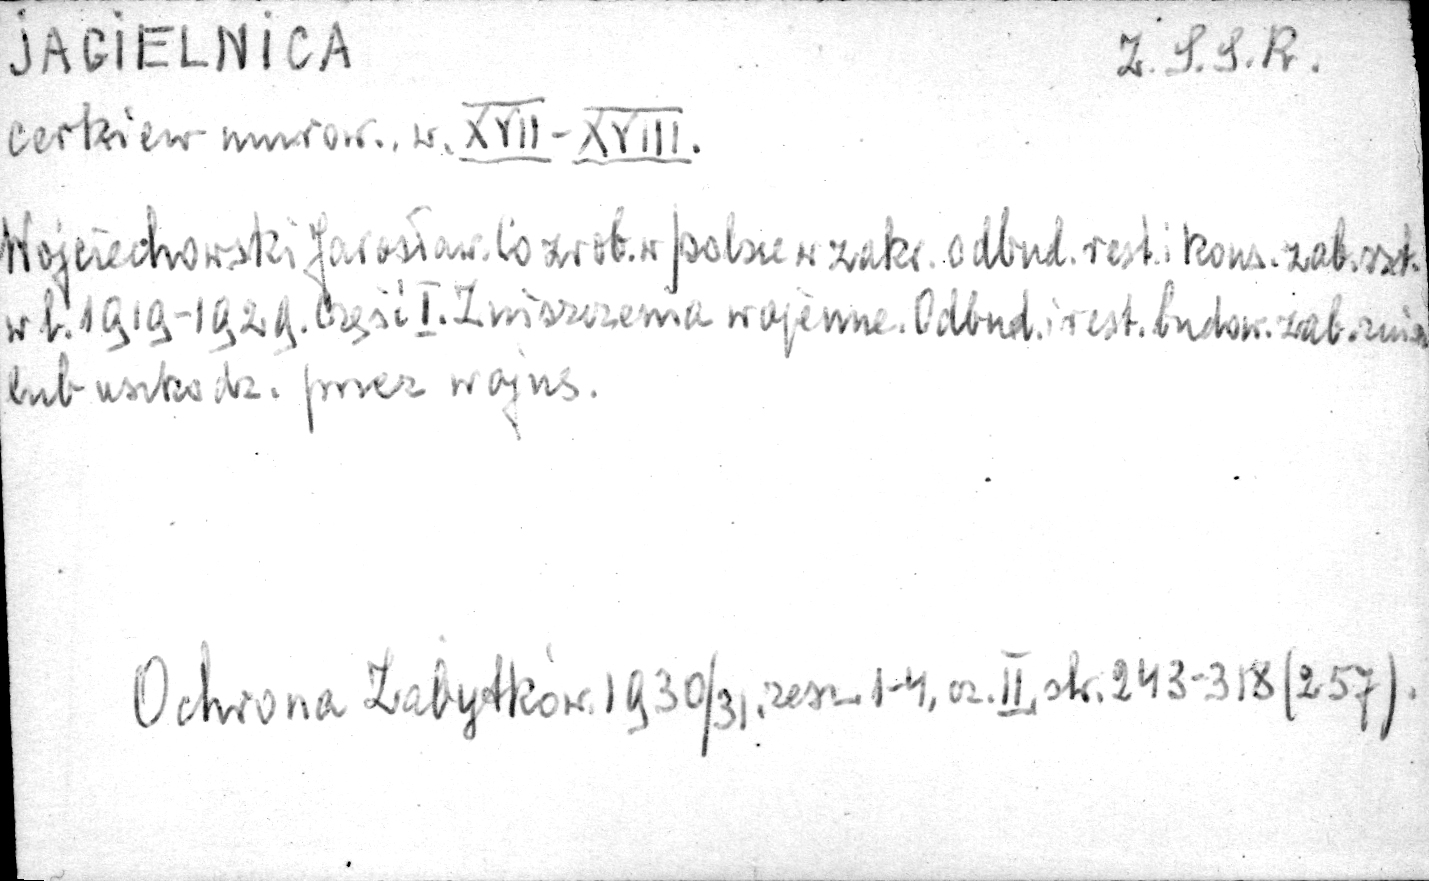 JAGIELNICA Z.S.S.R.
cerkiew murow., w. XVII-XVIII.
Wojciechowski Jarosław. Co zrob. w Polsce w zakr. odbud. rest. i kons. zab. szt.
w l. 1919-1929. Część I. Zniszczenia wojenne. Odbud. i rest. budow. zab. znisz
lub uszkodz. przez wojnę.
Ochrona Zabytków. 1930/31, zesz. 1-4, cz. II, str. 243-318 (257).